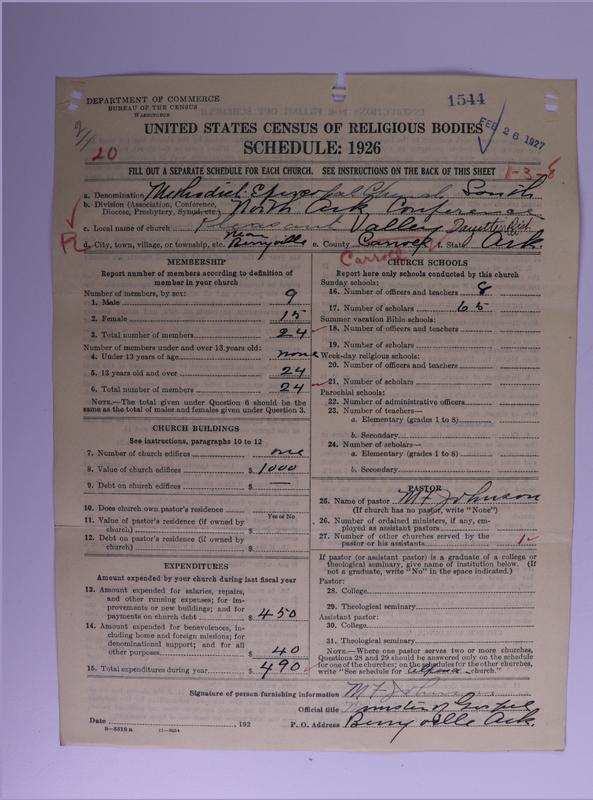 1544
DEPARTMENT OF COMMERCE
BUREAU OF THE CENSUS
WASHINGTON
FEB 26 1927
20
UNITED STATES CENSUS OF RELIGIOUS BODIES
SCHEDULE: 1926
FILL OUT A SEPARATE SCHEDULE FOR EACH CHURCH. SEE INSTRUCTIONS ON THE BACK OF THIS SHEET
1-3-8
a. Denomination Methodist Episcopal Church South
b. Division (Association, Conference, Diocese, Presbytery, Synod, etc.) North Ark Conference
c. Local name of church Pleasant Valley Fayetteville Dist
d. City, town, village, or township, etc. Near Berryville e. County Carroll f. State Ark.
Carroll
MEMBERSHIP
Report number of members according to definition of member in your church
Number of members, by sex:
1. Male 9
2. Female 15
3. Total number of members 24
Number of members under and over 13 years old:
4. Under 13 years of age none
5. 13 years old and over 24
6. Total number of members 24
NOTE.—The total given under Question 6 should be the same as the total of males and females given under Question 3.
CHURCH BUILDINGS
See instructions, paragraphs 10 to 12
7. Number of church edifices one
8. Value of church edifices $ 1000
9. Debt on church edifices $ —
10. Does church own pastor's residence?
Yes or No
11. Value of pastor's residence (if owned by church) $
12. Debt on pastor's residence (if owned by church) $
EXPENDITURES
Amount expended by your church during last fiscal year
13. Amount expended for salaries, repairs, and other running expenses; for improvements or new buildings; and for payments on church debt $ 450
14. Amount expended for benevolences, including home and foreign missions; for denominational support; and for all other purposes $ 40
15. Total expenditures during year $ 490
CHURCH SCHOOLS
Report here only schools conducted by this church
Sunday schools:
16. Number of officers and teachers 8
17. Number of scholars 65
Summer vacation Bible schools:
18. Number of officers and teachers
19. Number of scholars
Week-day religious schools:
20. Number of officers and teachers
21. Number of scholars
Parochial schools:
22. Number of administrative officers
23. Number of teachers—
a. Elementary (grades 1 to 8)
b. Secondary
24. Number of scholars—
a. Elementary (grades 1 to 8)
b. Secondary
PASTOR
25. Name of pastor M F Johnson
(If church has no pastor, write "None")
26. Number of ordained ministers, if any, employed as assistant pastors
27. Number of other churches served by the pastor or his assistants
If pastor (or assistant pastor) is a graduate of a college or theological seminary, give name of institution below. (If not a graduate, write "No" in the space indicated.)
Pastor:
28. College
29. Theological seminary
Assistant pastor:
30. College
31. Theological seminary
NOTE.—Where one pastor serves two or more churches, Questions 28 and 29 should be answered only on the schedule for one of the churches; on the schedules for the other churches, write "See schedule for Alpena church."
Signature of person furnishing information M F Johnson
Official title Minister of Gospel
Date , 192 P. O. Address Berryville Ark.
8—5518 a 11—9384